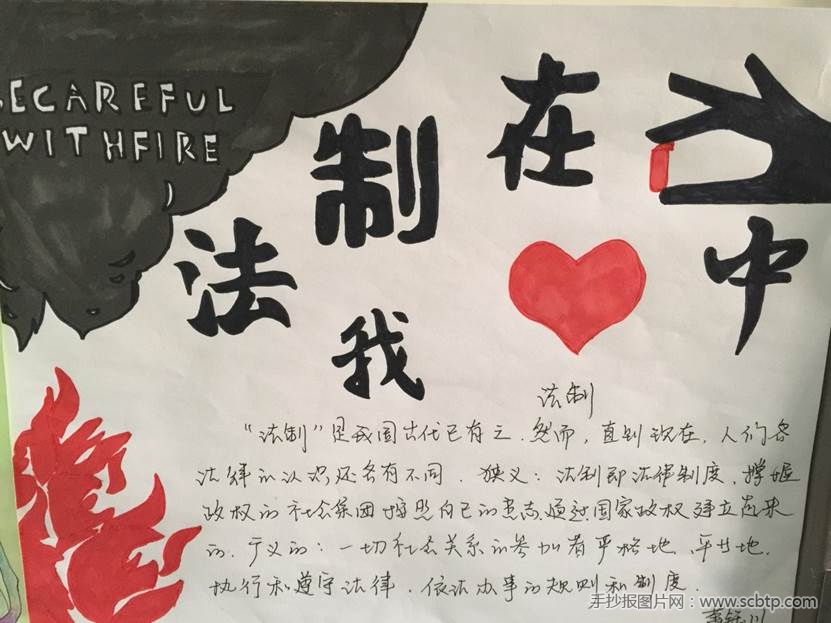 BECAREFUL
WITHFIRE
法制在
我❤中
法制
“法制”是我国古代已有之.然而,直到现在,人们各
法律的认识还各有不同.狭义:法制即法律制度.掌握
政权的社会集团按照自己的意志.通过国家政权建立起来
的.广义的:一切社会关系的参加者严格地、平等地.
执行和遵守法律.依法办事的规则和制度.
手抄报图片网:www.scbtp.com